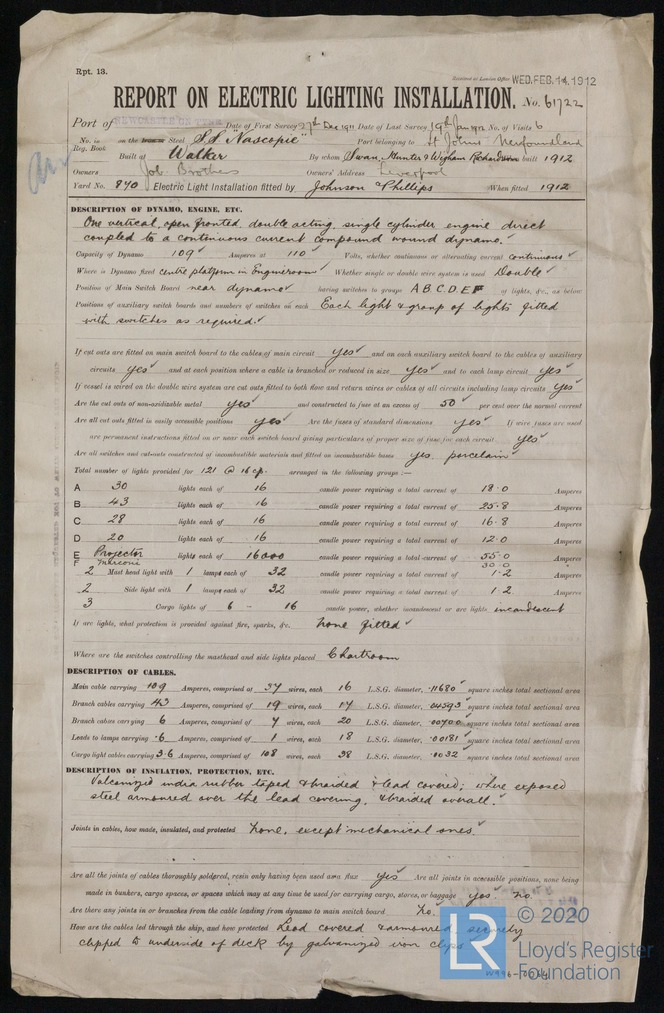 Rpt. 13.
Received at London Office WED. FEB. 14. 1912
REPORT ON ELECTRIC LIGHTING INSTALLATION. No. 61722
Port of NEWCASTLE ON TYNE Date of First Survey 27th Dec 1911 Date of Last Survey 19th Jan 1912 No. of Visits 6
No. in Reg. Book on the Iron or Steel S.S. "Nascopie" Port belonging to St Johns Newfoundland
Built at Walker By whom Swan, Hunter & Wigham Richardson built 1912
Owners Job Brothers Owners' Address Liverpool
Yard No. 870 Electric Light Installation fitted by Johnson & Phillips When fitted 1912
DESCRIPTION OF DYNAMO, ENGINE, ETC.
One vertical, open fronted, double acting, single cylinder engine direct
coupled to a continuous current compound wound dynamo.
Capacity of Dynamo 109 Amperes at 110 Volts, whether continuous or alternating current continuous
Where is Dynamo fixed centre platform in Engineroom Whether single or double wire system is used Double
Position of Main Switch Board near dynamo having switches to groups A B C D E F of lights, &c., as below
Positions of auxiliary switch boards and numbers of switches on each Each light & group of lights fitted
with switches as required.
If cut outs are fitted on main switch board to the cables of main circuit yes and on each auxiliary switch board to the cables of auxiliary
circuits yes and at each position where a cable is branched or reduced in size yes and to each lamp circuit yes
If vessel is wired on the double wire system are cut outs fitted to both flow and return wires or cables of all circuits including lamp circuits yes
Are the cut outs of non-oxidizable metal yes and constructed to fuse at an excess of 50 per cent over the normal current
Are all cut outs fitted in easily accessible positions yes Are the fuses of standard dimensions yes If wire fuses are used
are permanent instructions fitted on or near each switch board giving particulars of proper size of fuse for each circuit yes
Are all switches and cut-outs constructed of incombustible materials and fitted on incombustible bases yes porcelain
Total number of lights provided for 121 @ 16 cp. arranged in the following groups :—
A 30 lights each of 16 candle power requiring a total current of 18.0 Amperes
B 43 lights each of 16 candle power requiring a total current of 25.8 Amperes
C 28 lights each of 16 candle power requiring a total current of 16.8 Amperes
D 20 lights each of 16 candle power requiring a total current of 12.0 Amperes
E Projector lights each of 16000 candle power requiring a total current of 55.0 Amperes
F Marconi 30.0
2 Mast head light with 1 lamps each of 32 candle power requiring a total current of 1.2 Amperes
2 Side light with 1 lamps each of 32 candle power requiring a total current of 1.2 Amperes
3 Cargo lights of 6 - 16 candle power, whether incandescent or arc lights incandescent
If arc lights, what protection is provided against fire, sparks, &c. none fitted
Where are the switches controlling the masthead and side lights placed Chartroom
DESCRIPTION OF CABLES.
Main cable carrying 109 Amperes, comprised of 37 wires, each 16 L.S.G. diameter, .11680 square inches total sectional area
Branch cables carrying 43 Amperes, comprised of 19 wires, each 17 L.S.G. diameter, .04593 square inches total sectional area
Branch cables carrying 6 Amperes, comprised of 7 wires, each 20 L.S.G. diameter, .00700 square inches total sectional area
Leads to lamps carrying .6 Amperes, comprised of 1 wires, each 18 L.S.G. diameter, .00181 square inches total sectional area
Cargo light cables carrying 3.6 Amperes, comprised of 108 wires, each 38 L.S.G. diameter, .0032 square inches total sectional area
DESCRIPTION OF INSULATION, PROTECTION, ETC.
Vulcanized india rubber taped & braided & lead covered; where exposed
steel armoured over the lead covering, & braided overall.
Joints in cables, how made, insulated, and protected none, except mechanical ones
Are all the joints of cables thoroughly soldered, resin only having been used as a flux yes Are all joints in accessible positions, none being
made in bunkers, cargo spaces, or spaces which may at any time be used for carrying cargo, stores, or baggage yes no
Are there any joints in or branches from the cable leading from dynamo to main switch board no.
How are the cables led through the ship, and how protected Lead covered & armoured securely
clipped to underside of deck by galvanized iron clips
LR
© 2020
Lloyd's Register
Foundation